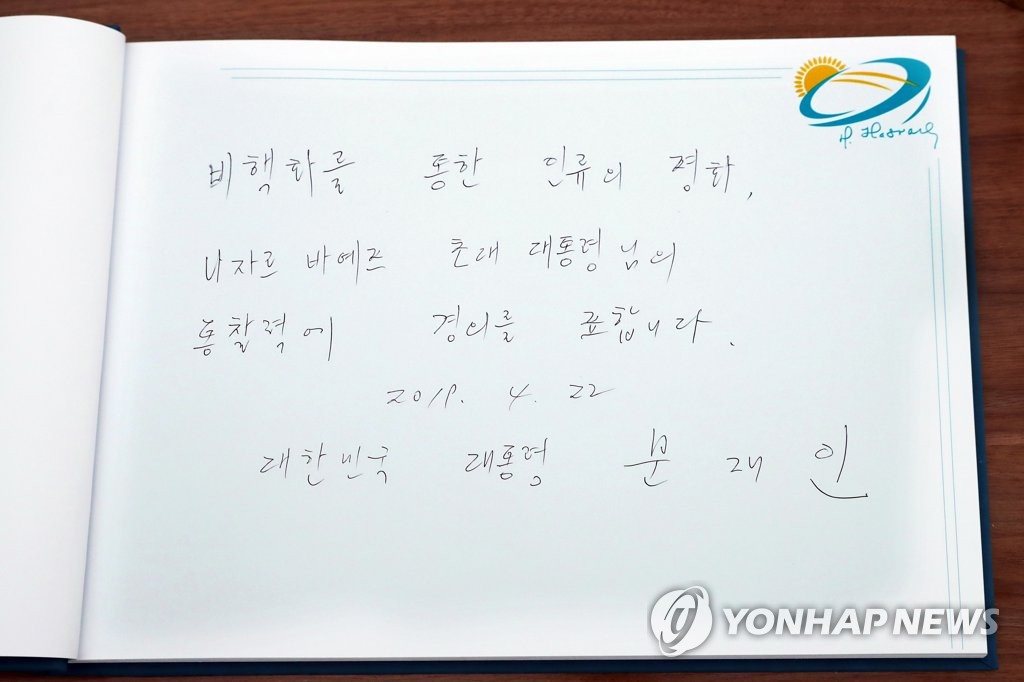 비핵화를 통한 인류의 평화,
나자르바예프 초대 대통령님의
통찰력에 경의를 표합니다.
2019. 4. 22
대한민국 대통령 문재인
YONHAP NEWS